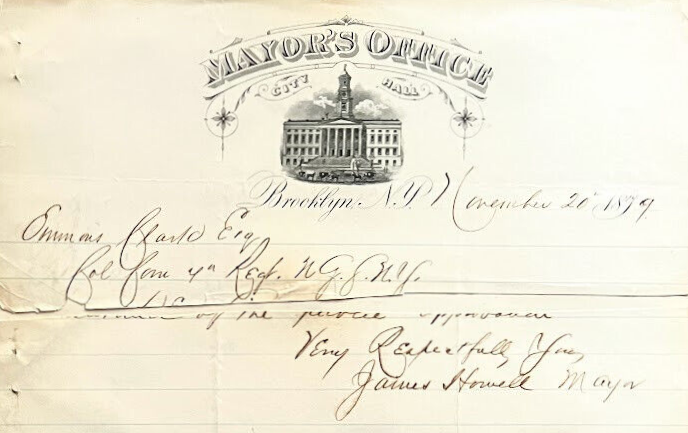 MAYOR'S OFFICE
CITY HALL
Brooklyn, N.Y. November 20th 1879
Emmons Clark Esq
Col Com 7th Regt. N.G.S.N.Y.
of the public approbation
Very Respectfully Yours
James Howell Mayor